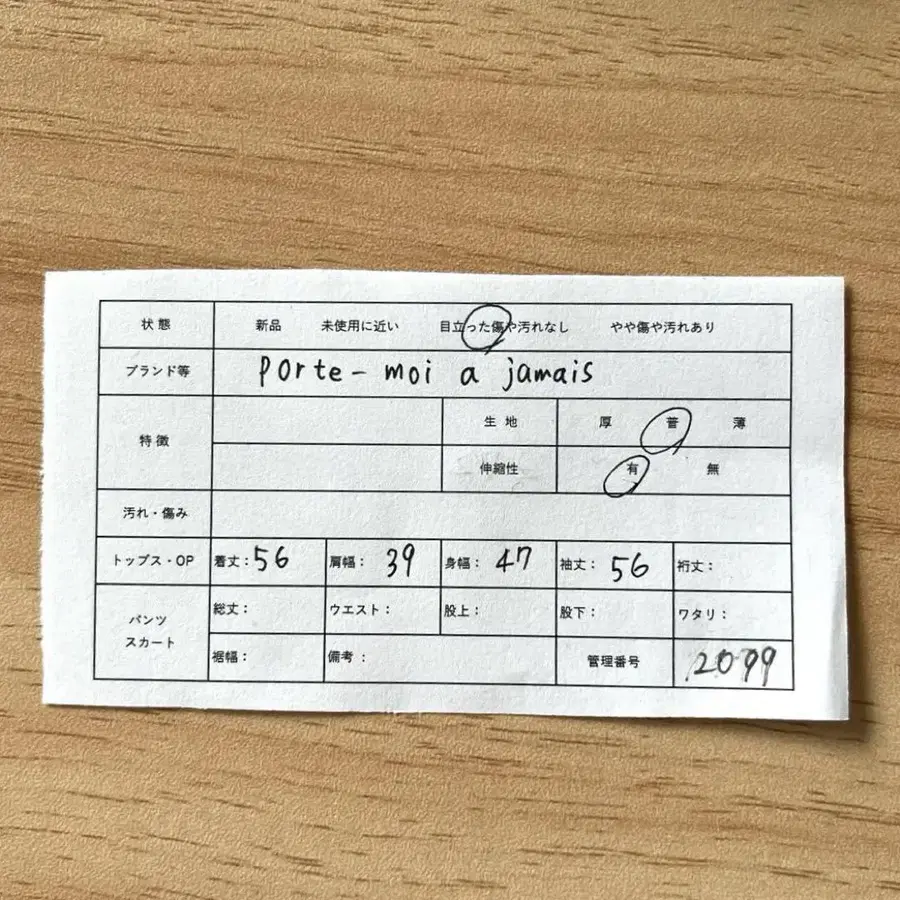 状態 新品 未使用に近い 目立った傷や汚れなし やや傷や汚れあり
ブランド等 porte-moi a jamais
特徴 生地 厚 普 薄
伸縮性 有 無
汚れ・傷み
トップス・OP 着丈：56 肩幅：39 身幅：47 袖丈：56 裄丈：
パンツ スカート 総丈： ウエスト： 股上： 股下： ワタリ：
裾幅： 備考： 管理番号 2099